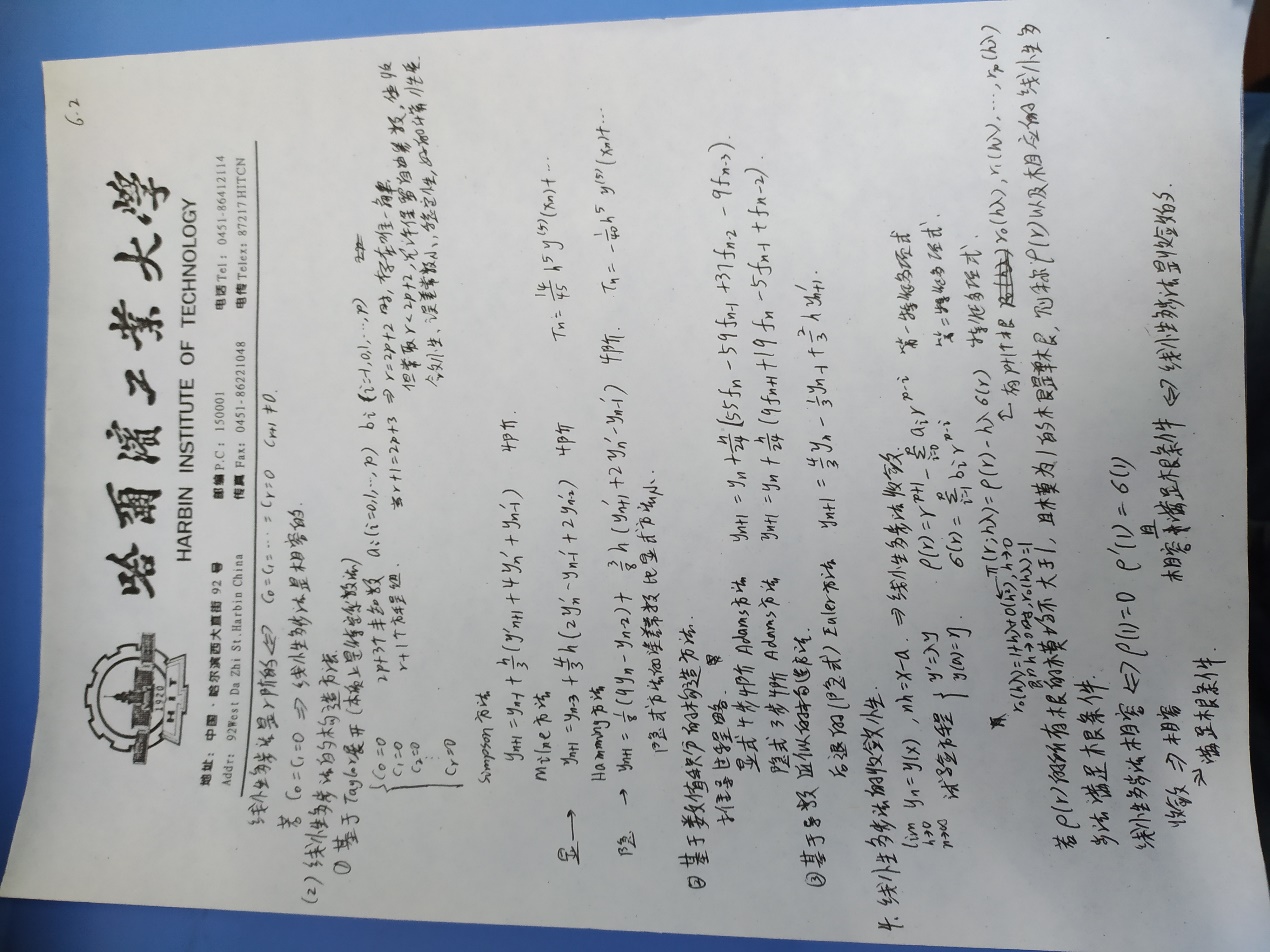 6.2
哈爾濱工業大學
HARBIN INSTITUTE OF TECHNOLOGY
1920
HIT
地址：中国·哈尔滨西大直街 92 号 邮编 P.C：150001 电话 Tel：0451-86412114
Addr：92West Da Zhi St.Harbin China 传真 Fax：0451-86221048 电传 Telex：87217HITCN
线性多步法是 r 阶的 ⇔ C₀=C₁=⋯=Cᵣ=0 Cᵣ₊₁≠0.
若 C₀=C₁=0 ⇒ 线性多步法是相容的.
(2) 线性多步法的构造方法.
① 基于Taylor展开 (本质上是待定系数法)
C₀=0
C₁=0
C₂=0
⋮
Cᵣ=0
2p+3个未知数 aᵢ(i=0,1,…,p) bᵢ(i=-1,0,1,…,p)
r+1个方程组. 当 r+1=2p+3 ⇒ r=2p+2 时, 存在唯一解.
但常取 r<2p+2, 允许保留自由参数, 使收
敛性、误差常数小、稳定性、好的计算性质
Simpson方法
yₙ₊₁=yₙ₋₁+h/3(y'ₙ₊₁+4y'ₙ+y'ₙ₋₁) 4阶.
Milne方法
显 → yₙ₊₁=yₙ₋₃+4/3h(2y'ₙ-y'ₙ₋₁+2y'ₙ₋₂) 4阶 Tₙ=14/45h⁵y⁽⁵⁾(xₙ)+⋯
Hamming方法
隐 → yₙ₊₁=1/8(9yₙ-yₙ₋₂)+3/8h(y'ₙ₊₁+2y'ₙ-y'ₙ₋₁) 4阶. Tₙ=-1/40h⁵y⁽⁵⁾(xₙ)+⋯
隐式方法的误差常数比显式方法小.
② 基于数值积分的构造方法.
推导过程略.
显式4步4阶Adams方法 yₙ₊₁=yₙ+h/24[55fₙ-59fₙ₋₁+37fₙ₋₂-9fₙ₋₃).
隐式3步4阶Adams方法 yₙ₊₁=yₙ+h/24(9fₙ₊₁+19fₙ-5fₙ₋₁+fₙ₋₂).
③ 基于导数近似的构造方法.
后退的(隐式)Euler方法 yₙ₊₁=4/3yₙ-1/3yₙ₋₁+2/3hy'ₙ₊₁.
4. 线性多步法的收敛性.
lim yₙ=y(x), nh=x-a. ⇒ 线性多步法收敛.
h→0
n→∞
试验方程 { y'=λy
y(a)=η.
ρ(r)=rᵖ⁺¹-∑ᵢ₌₀ᵖ aᵢrᵖ⁻ⁱ 第一特征多项式
σ(r)=∑ᵢ₌₋₁ᵖ bᵢrᵖ⁻ⁱ 第二特征多项式.
π(r;hλ)=ρ(r)-hλσ(r) 特征多项式.
↑ 有p+1个根 r₀(hλ), r₁(hλ),…,rₚ(hλ)
r₀(hλ)=1+hλ+O(h²), h→0
即 h→0时, r₀(hλ)=1
若ρ(r)的所有根的模均不大于1, 且模为1的根是单根, 则称ρ(r)以及相应的线性多
步法满足根条件.
线性多步法相容 ⇔ ρ(1)=0 ρ'(1)=σ(1)
收敛 ⇒ 相容 相容且满足根条件 ⇔ 线性多步法是收敛的.
⇒ 满足根条件.